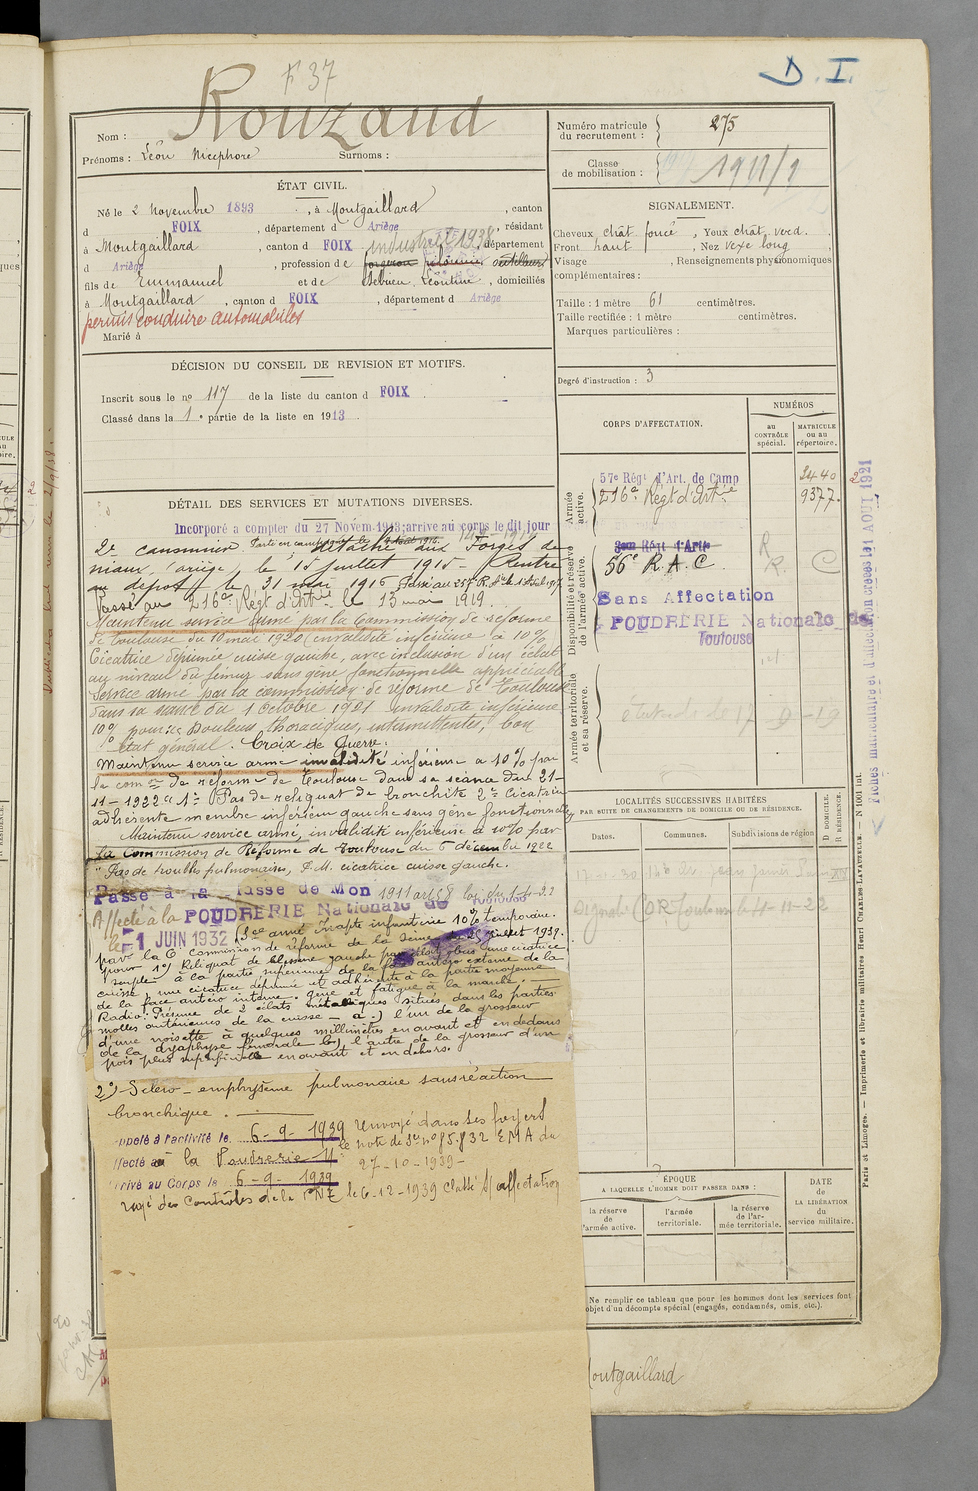 F 37
D. I.
Nom : Rouzaud
Prénoms : Léon Nicéphore Surnoms :
Numéro matricule du recrutement : 275
Classe de mobilisation : 1911/2
ÉTAT CIVIL.
Né le 2 Novembre 1893, à Montgaillard, canton
d FOIX, département d Ariège, résidant
à Montgaillard, canton d FOIX, département
industriel 1938
d Ariège, profession de forgeron
fils de Emmanuel et de Léontine, domiciliés
à Montgaillard, canton d FOIX, département d Ariège
permis conduire automobiles
Marié à
SIGNALEMENT.
Cheveux chât foncé, Yeux chât verd.
Front haut, Nez vexe long
Visage , Renseignements physionomiques
complémentaires :
Taille : 1 mètre 61 centimètres.
Taille rectifiée : 1 mètre centimètres.
Marques particulières :
Degré d'instruction : 3
DÉCISION DU CONSEIL DE REVISION ET MOTIFS.
Inscrit sous le no 117 de la liste du canton d FOIX
Classé dans la 1e partie de la liste en 1913
CORPS D'AFFECTATION.
NUMÉROS
au CONTRÔLE spécial.
MATRICULE ou au répertoire.
Armée active.
57e Régt d'Art. de Camp 2440
216e Régt d'Art^ie 9377
Disponibilité et réserve de l'armée active.
56e R.A.C.
R. C
Sans Affectation
POUDRERIE Nationale de
Toulouse
Armée territoriale et sa réserve.
DÉTAIL DES SERVICES ET MUTATIONS DIVERSES.
Incorporé a compter du 27 Novem.1913;arrive au corps le dit jour
2e canonnier détaché aux Forges de
niaux, ariège, le 15 juillet 1915 - Rentre
au dépôt le 31 mai 1916
Passé au 216e Régt d'Art^ie le 13 mai 1919.
Maintenu service armé par la Commission de réforme
de Toulouse du 10 mai 1920 (invalidité inférieure à 10%
Cicatrice déprimée cuisse gauche, avec inclusion d'un éclat
au niveau du fémur sans gêne fonctionnelle appréciable
service armé par la commission de réforme de Toulouse
dans sa séance du 1 octobre 1921 Invalidité inférieure
10% pour: douleurs thoraciques, intermittentes, bon
état général. Croix de Guerre.
Maintenu service armé invalidité inférieure à 10% par
la com^on de réforme de Toulouse dans sa séance du 21-
11-1922 " 1º Pas de reliquat de bronchite 2º Cicatrice
adhérente membre inférieur gauche sans gêne fonctionnelle
Maintenu service armé, invalidité inférieure à 10% par
la Commission de Réforme de Toulouse du 6 décembre 1922
" Pas de troubles pulmonaires, P.M. cicatrice cuisse gauche.
Passé à la classe de Mon 1911 art 58 loi du 1-4-23
Affecté à la POUDRERIE Nationale de Toulouse
le 1 JUIN 1932
Sce armé Inapte infanterie 10% temporaire.
par la 6e Commission de réforme de la Seine du 25 juillet 1939.
pour 1º) Reliquat de blessure gauche par éclat obus une cicatrice
souple à la partie supérieure de la face antéro externe de la
cuisse une cicatrice déprimée et adhérente à la partie moyenne
de la face antéro interne. gêne et fatigue à la marche.
Radio: Présence de 2 éclats métalliques situés dans les parties
molles antérieures de la cuisse - a) l'un de la grosseur
d'une noisette à quelques millimètres en avant et en dedans
de la dyaphyse fémorale b) l'autre de la grosseur d'un
pois plus superficielle en avant et en dehors.
2º) Scléro-emphysème pulmonaire sans réaction
bronchique.
Appelé à l'activité le 6-9-1939 Renvoyé dans ses foyers
Affecté à la Poudrerie Nle note de Sce nº 85.832 EMA du
Arrivé au Corps le 6-9-1939 27-10-1939-
rayé des Contrôles de la PNT le 6-12-1939 classé S/affectation
LOCALITÉS SUCCESSIVES HABITÉES
PAR SUITE DE CHANGEMENTS DE DOMICILE OU DE RÉSIDENCE.
Dates.
Communes.
Subdivisions de région
D DOMICILE.
R RÉSIDENCE.
Signalé CDR Toulouse le 4-11-22
ÉPOQUE
A LAQUELLE L'HOMME DOIT PASSER DANS :
la réserve de l'armée active.
l'armée territoriale.
la réserve de l'armée territoriale.
DATE de LA LIBÉRATION du service militaire.
Ne remplir ce tableau que pour les hommes dont les services font
objet d'un décompte spécial (engagés, condamnés, omis, etc.).
Montgaillard
Paris et Limoges. — Imprimerie et librairie militaires Henri CHARLES-LAVAUZELLE. — N 1001 int.